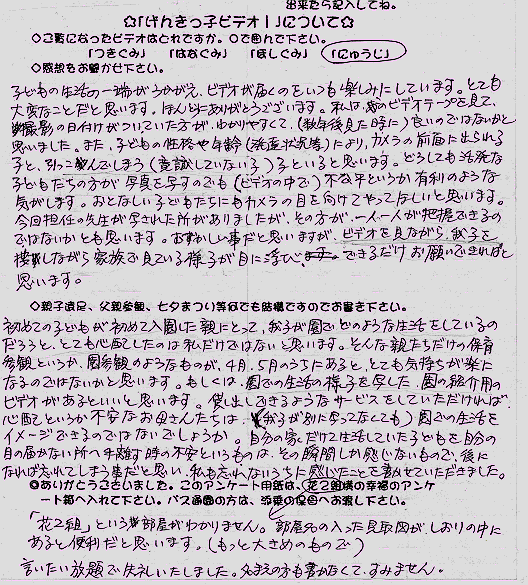 出来たら記入してね。
☆「げんきっ子ビデオⅠ」について☆
◇ご覧になったビデオはどれですか。○で囲んで下さい。
「つきぐみ」 「はなぐみ」 「ほしぐみ」 「にゅうじ」
◇感想をお聞かせ下さい。
子どもの生活の一端がうかがえ、ビデオが届くのをいつも楽しみにしています。とても
大変なことだと思います。ほんとにありがとうございます。私は、前のビデオテープを見て、
撮影の日付けがついていた方が、わかりやすくて、(数年後見た時に)良いのではないかと
思いました。また、子どもの性格や年齢(発達状況等)により、カメラの前面に出られる
子と、引っ込んでしまう(意識していない子)子といると思います。どうしても活発な
子どもたちの方が写真を写すのでも(ビデオの中で)不公平というか有利のような
気がします。おとなしい子どもたちにもカメラの目を向けてやってほしいと思います。
今回担任の先生が写された所がありましたが、その方が、一人一人が把握できるの
ではないかとも思います。おずかしい事だと思いますが、ビデオを見ながら、我子を
模しながら家族で見ている様子が目に浮び、できるだけお願いできればと
思います。
◇親子遠足、父親参観、七夕まつり等何でも結構ですのでお書き下さい。
初めての子どもが初めて入園した親にとって、我子が園でどのような生活をしているの
だろうと、とても心配したのは私だけではないと思います。そんな親たちだけの保育
参観というか、園参観のようなものが、4月、5月のうちにあると、とても気持ちが楽に
なるのではないかと思います。もしくは、園での生活の様子を写した、園の紹介用の
ビデオがあるといいと思います。貸し出しできるようなサービスをしていただければ、
心配というか不安なお母さんたちは、(我子が別に写ってなくても)園での生活を
イメージできるのではないでしょうか。自分の家だけで生活していた子どもを自分の
目の届かない所へ手離す時の不安というものは、その瞬間しか感じないもので、後に
なれば忘れてしまう事だと思い、私も忘れないうちに感じたことを書かせていただきました。
◎ありがとうございました。このアンケート用紙は、花2組様の幸福のアンケ
ート箱へ入れて下さい。バス通園の方は、添乗の保母へお渡し下さい。
「花2組」という部屋がわかりません。部屋名の入った見取図がしおりの中に
あると便利だと思います。(もっと大きめのもので)
言いたい放題で失礼いたしました。名まえの方も書かなくて、すみません。